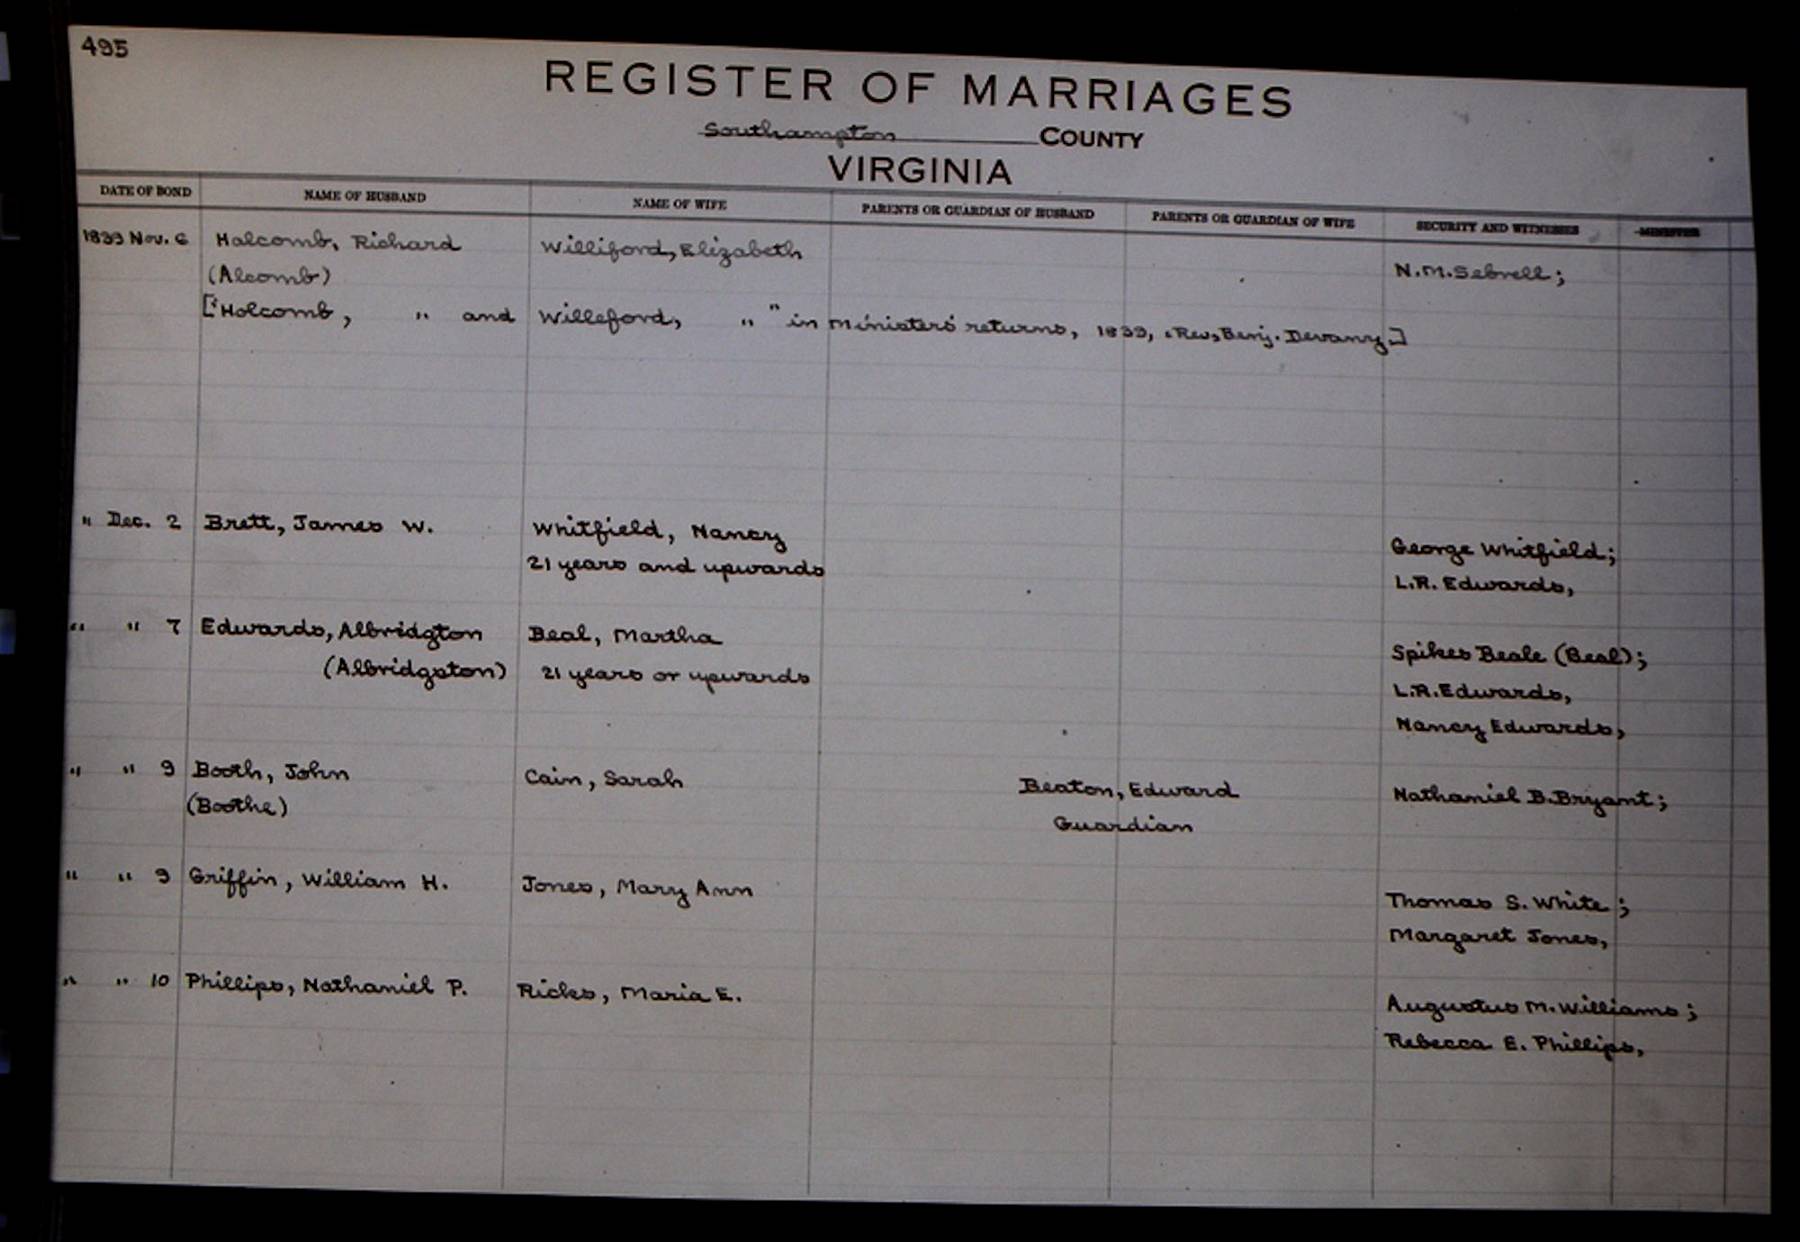 495
REGISTER OF MARRIAGES
Southampton COUNTY
VIRGINIA
DATE OF BOND NAME OF HUSBAND NAME OF WIFE PARENTS OR GUARDIAN OF HUSBAND PARENTS OR GUARDIAN OF WIFE SECURITY AND WITNESSES MINISTER
1839 Nov. 6 Halcomb, Richard Williford, Elizabeth
(Alcomb) N.M. Sebrell;
[Holcomb, " and Willeford, " " in Ministers' returns, 1839, (Rev) Benj. Devany]
" Dec. 2 Brett, James W. Whitfield, Nancy George Whitfield;
21 years and upwards L.R. Edwards,
" " 7 Edwards, Albridgton Beal, Martha Spikes Beale (Beal);
(Albridgston) 21 years or upwards L.R. Edwards,
Nancy Edwards,
" " 9 Booth, John Cain, Sarah Beaton, Edward Nathaniel B. Bryant;
(Boothe) Guardian
" " 9 Griffin, William H. Jones, Mary Ann Thomas S. White;
Margaret Jones,
" " 10 Phillips, Nathaniel P. Ricks, Maria E. Augustus M. Williams;
Rebecca E. Phillips,